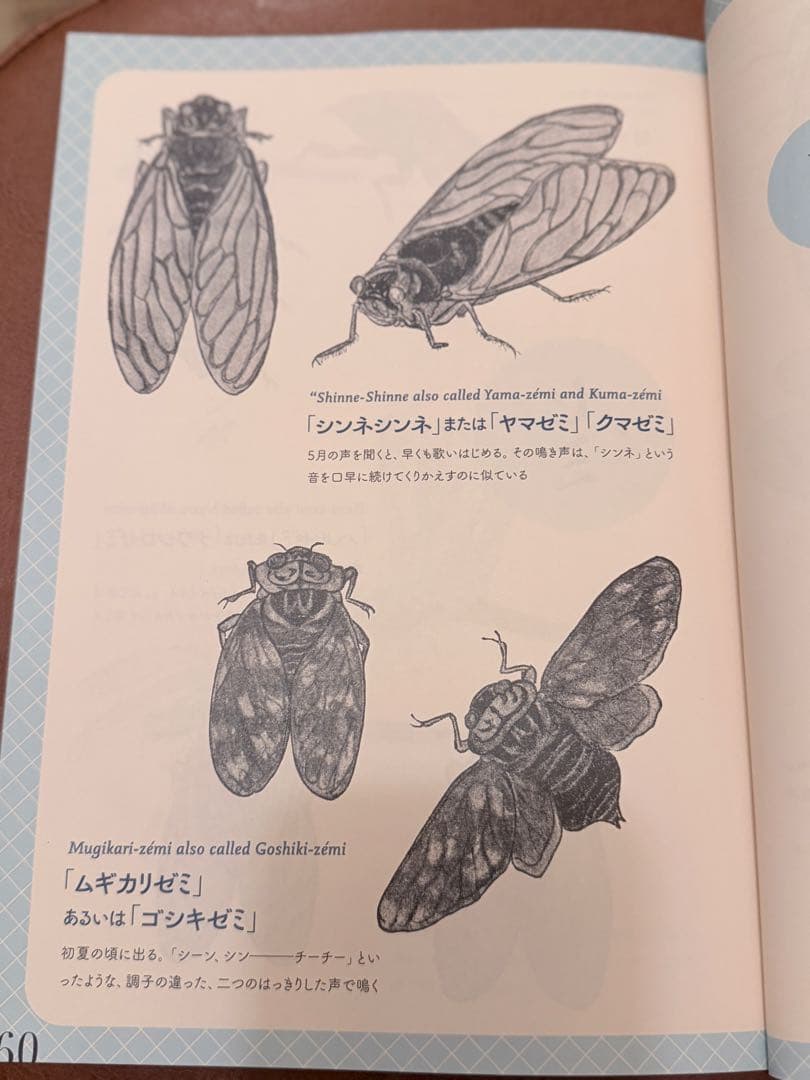 “Shinne-Shinne also called Yama-zémi and Kuma-zémi
「シンネシンネ」または「ヤマゼミ」「クマゼミ」
5月の声を聞くと、早くも歌いはじめる。その鳴き声は、「シンネ」という
音を口早に続けてくりかえすのに似ている
Mugikari-zémi also called Goshiki-zémi
「ムギカリゼミ」
あるいは「ゴシキゼミ」
初夏の頃に出る。「シーン、シン———チーチー」とい
ったような、調子の違った、二つのはっきりした声で鳴く
60